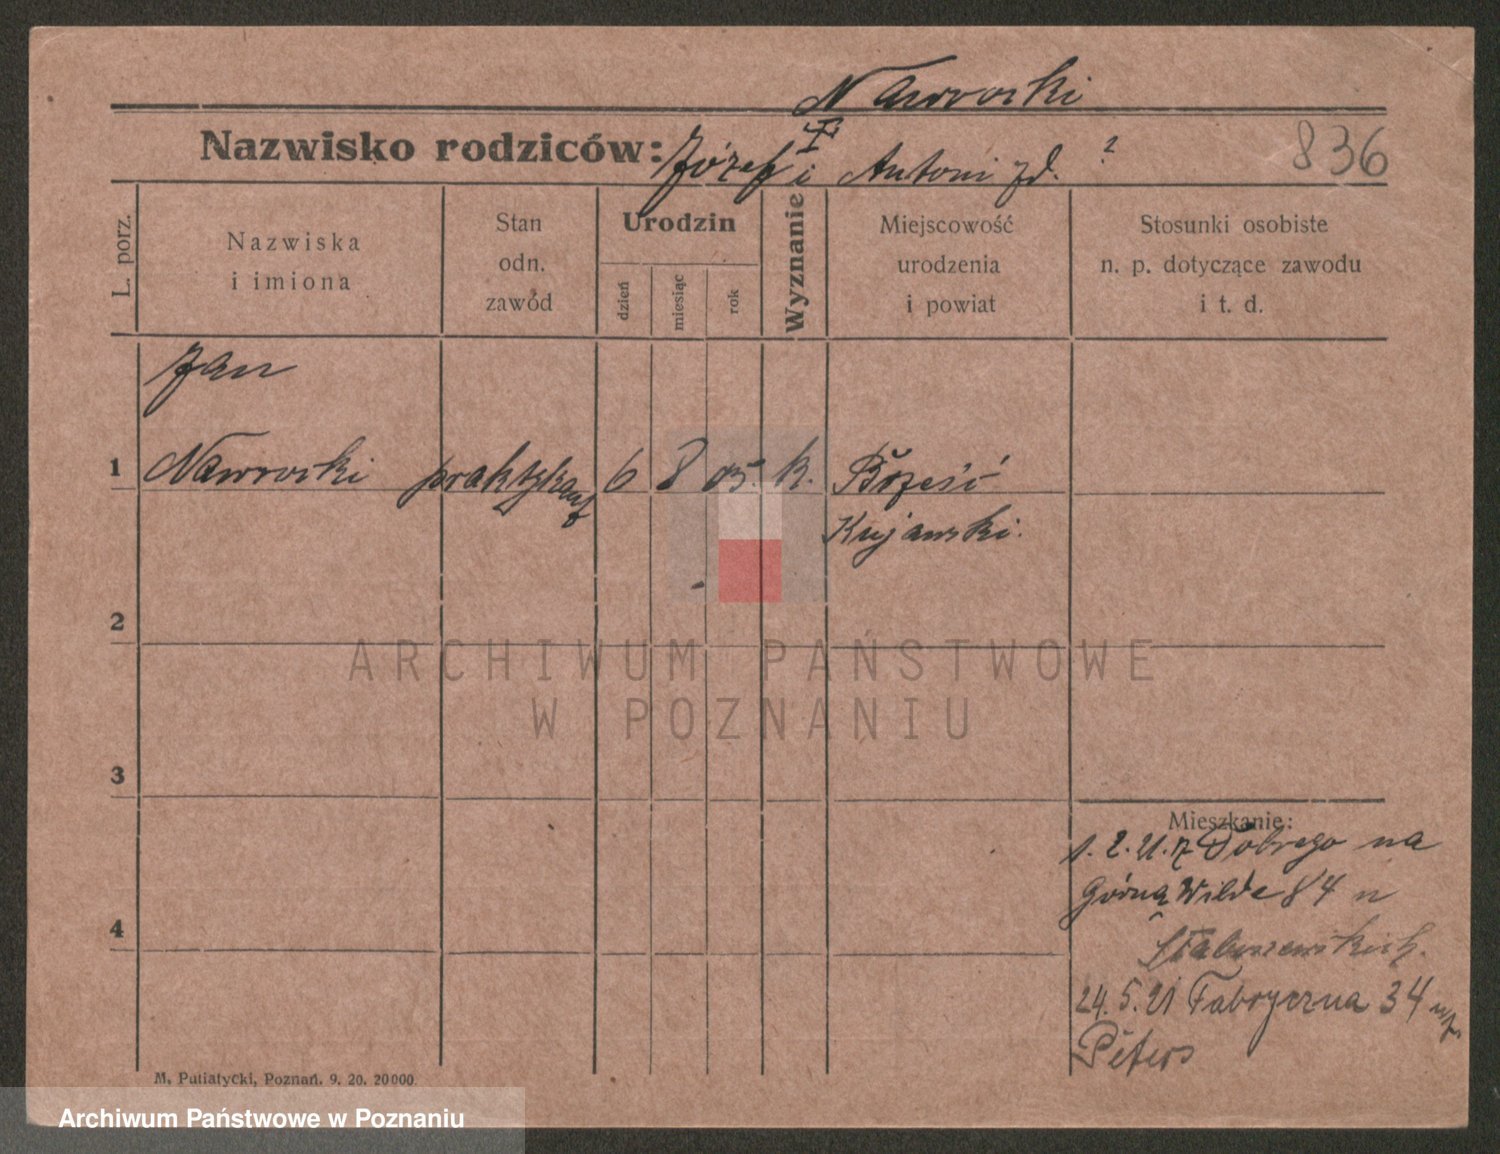 Nawrocki
Nazwisko rodziców: Józef i Antoni zd. ?
836
L. porz.
Nazwiska
i imiona
Stan
odn.
zawód
Urodzin
dzień
miesiąc
rok
Wyznanie
Miejscowość
urodzenia
i powiat
Stosunki osobiste
n. p. dotyczące zawodu
i t. d.
Jan
1 Nawrocki praktykant 6 8 05. k. Brześć
Kujawski.
2
ARCHIWUM PAŃSTWOWE
W POZNANIU
3
Mieszkanie:
1. 2. 21. z Dobrego na
Górną Wilde 84 u
4
24. 5. 21 Fabryczna 34
Peters
M. Putiatycki, Poznań. 9. 20. 20000.
Archiwum Państwowe w Poznaniu